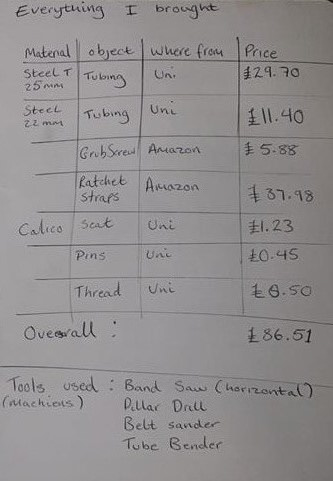 Everything I brought
Material object Where from Price
Steel T Tubing Uni £29.70
25mm
Steel Tubing Uni £11.40
22mm
GrubScrew Amazon £5.88
Ratchet Amazon £37.98
Straps
Calico Seat Uni £1.23
Pins Uni £0.45
Thread Uni £0.50
Overall : £86.51
Tools used : Band Saw (horizontal)
(machiens) Pillar Drill
Belt sander
Tube Bender